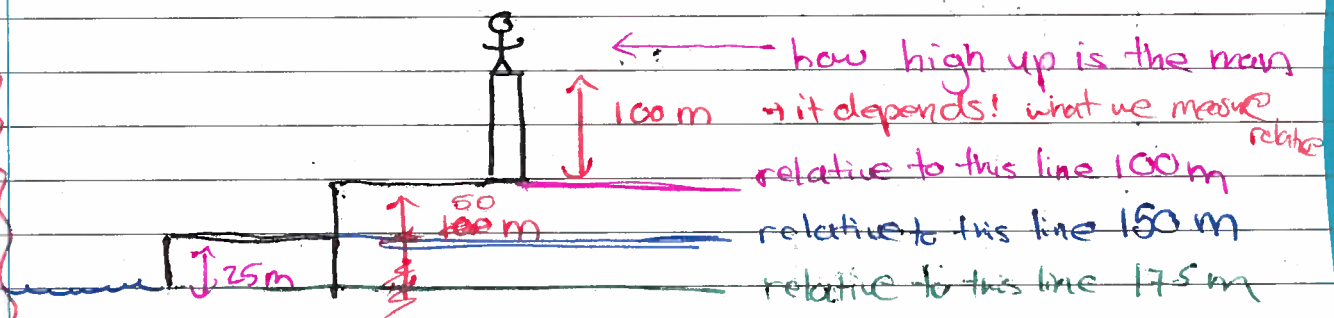 how high up is the man
100m → it depends! what we measure
relative
relative to this line 100m
50
100m
relative to this line 150 m
25m
relative to this line 175 m